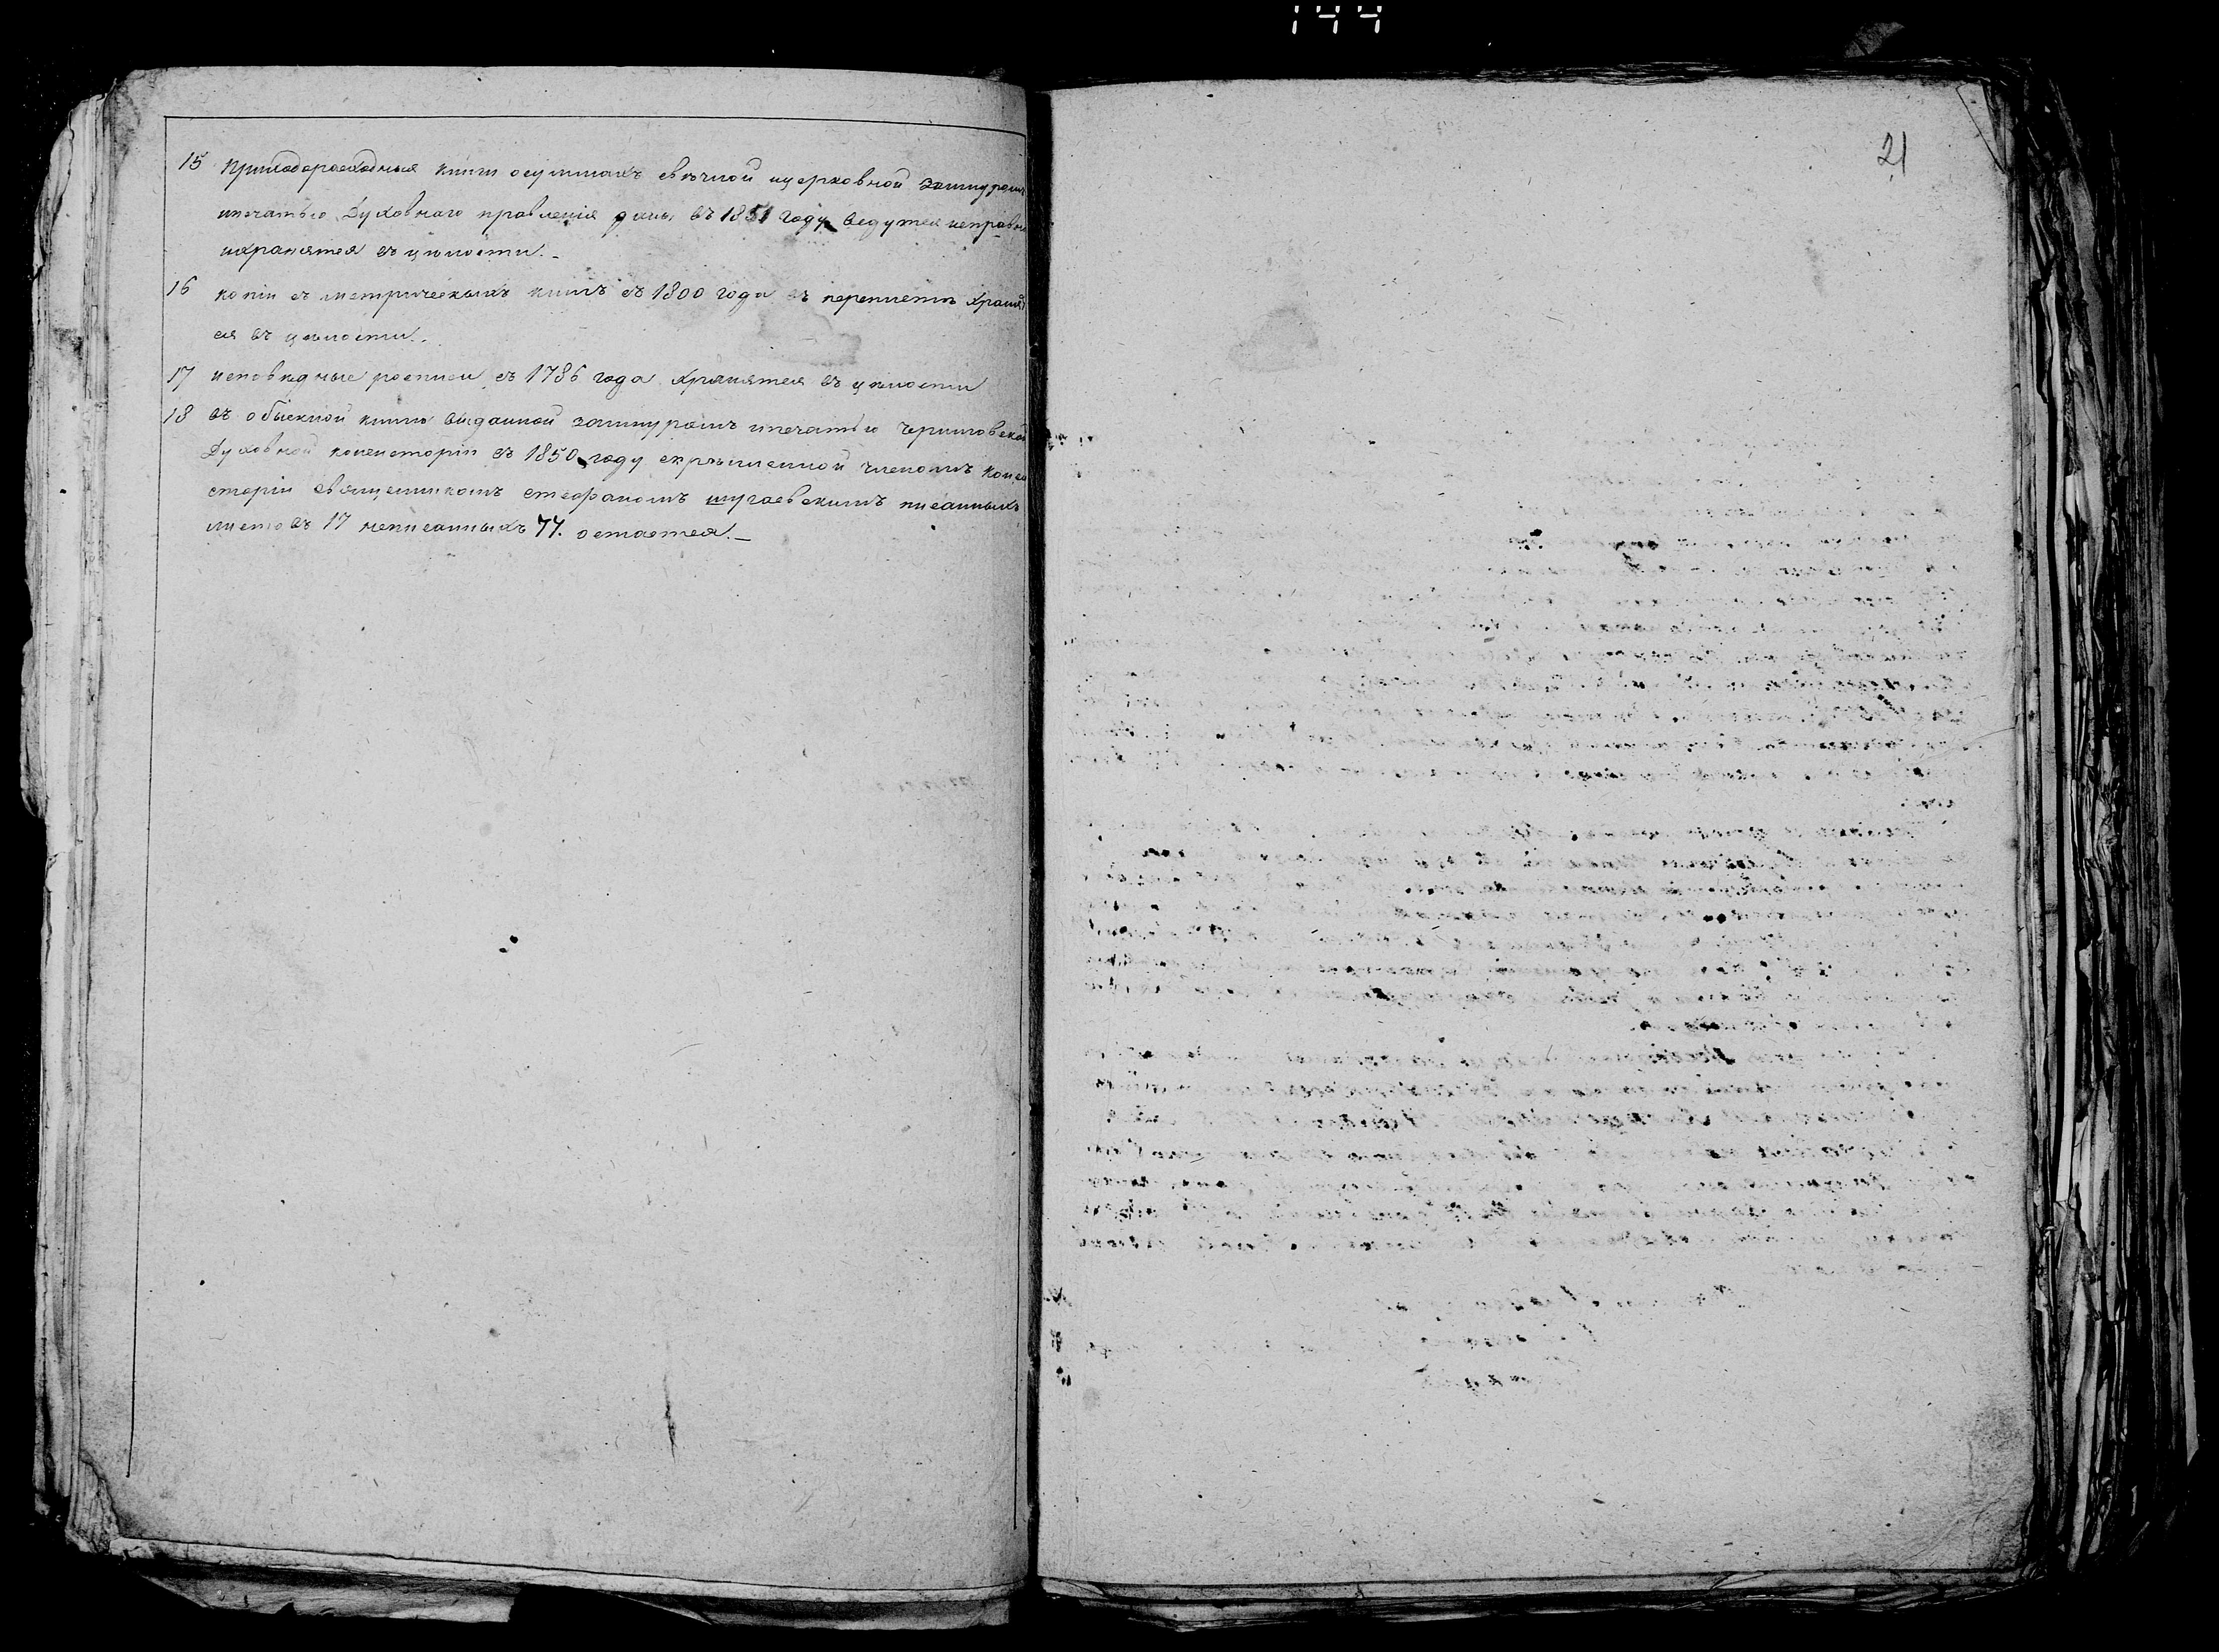 144
21
15 Приходорасходныя книги осуммахъ свѣчной ицерковной зашнуромъ
ипечатью Духовнаго правленія даны въ 1851 году ведутся исправно
ихранятся въ цѣлости.-
16 копіи съ метрическихъ книгъ съ 1800 года въ переплетѣ хранят
ся въ цѣлости.
17 исповѣдные росписи съ 1786 года хранятся въ цѣлости
18 въ обыскной книгѣ выданной зашнуромъ ипечатью Черниговской
Духовной консисторіи въ 1850 году скрѣпленной членомъ Конси
сторіи священникомъ стефаномъ шугаевскимъ писанныхъ
листовъ 17 неписанныхъ 77. остается.-